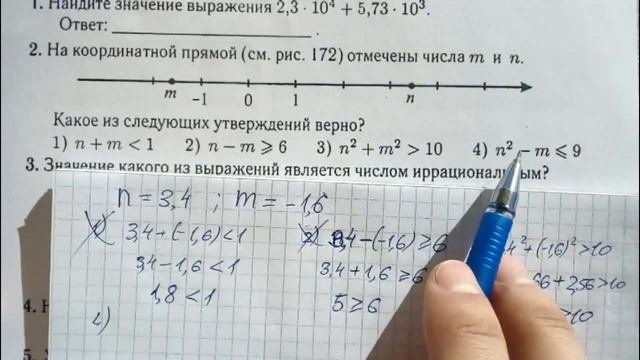 1. Найдите значение выражения 2,3 · 10⁴ + 5,73 · 10³.
Ответ:
2. На координатной прямой (см. рис. 172) отмечены числа m и n.
m -1 0 1 n
Какое из следующих утверждений верно?
1) n + m < 1 2) n − m ⩾ 6 3) n² + m² > 10 4) n² − m ⩽ 9
3. Значение какого из выражений является числом иррациональным?
n = 3,4 ; m = -1,6
1) 3,4 + (-1,6) < 1 2) 3,4 - (-1,6) ≥ 6 4² + (-1,6)² > 10
3,4 - 1,6 < 1 3,4 + 1,6 ≥ 6 56 + 2,56 > 10
1,8 < 1 5 ≥ 6 > 10
4.
5.